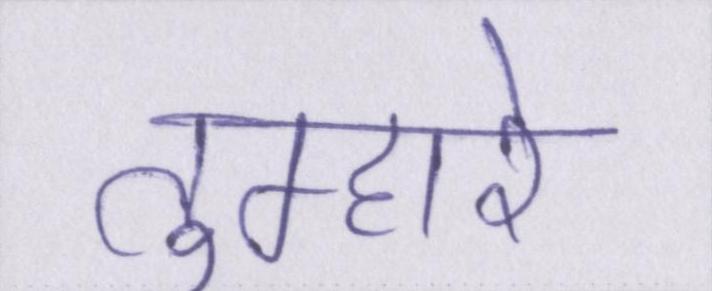 तुम्हारे